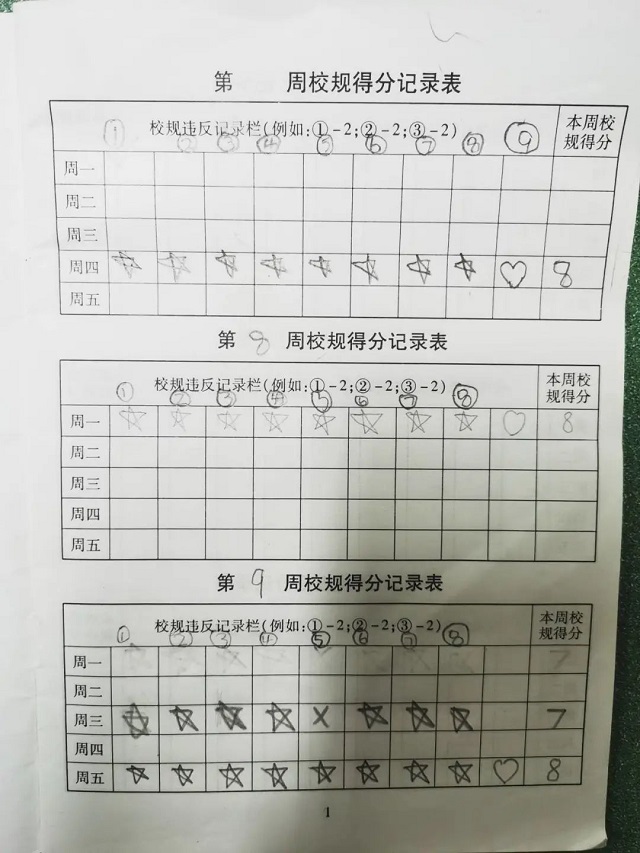 第 周校规得分记录表
校规违反记录栏(例如:①-2;②-2;③-2) 本周校规得分
① ② ③ ④ ⑤ ⑥ ⑦ ⑧ ⑨
周一
周二
周三
周四 ☆ ☆ ☆ ☆ ☆ ☆ ☆ ☆ ♡ 8
周五
第 8 周校规得分记录表
校规违反记录栏(例如:①-2;②-2;③-2) 本周校规得分
① ② ③ ④ ⑤ ⑥ ⑦ ⑧
周一 ☆ ☆ ☆ ☆ ☆ ☆ ☆ ☆ ♡ 8
周二
周三
周四
周五
第 9 周校规得分记录表
校规违反记录栏(例如:①-2;②-2;③-2) 本周校规得分
① ② ③ ④ ⑤ ⑥ ⑦ ⑧
周一 7
周二
周三 ☆ ☆ ☆ ☆ × ☆ ☆ ☆ 7
周四
周五 ☆ ☆ ☆ ☆ ☆ ☆ ☆ ☆ ♡ 8
1